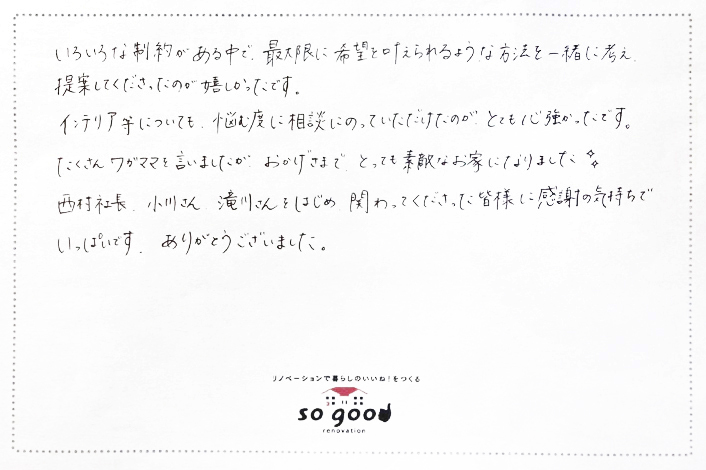 いろいろな制約がある中で、最大限に希望を叶えられるような方法を一緒に考え、
提案してくださったのが嬉しかったです。
インテリア等についても、悩む度に相談にのっていただけたのが、とても心強かったです。
たくさんワガママを言いましたが、おかげさまで、とっても素敵なお家になりました
西村社長、小川さん、滝川さんをはじめ、関わってくださった皆様に感謝の気持ちで
いっぱいです。ありがとうございました。
リノベーションで暮らしのいいね!をつくる
so good
renovation